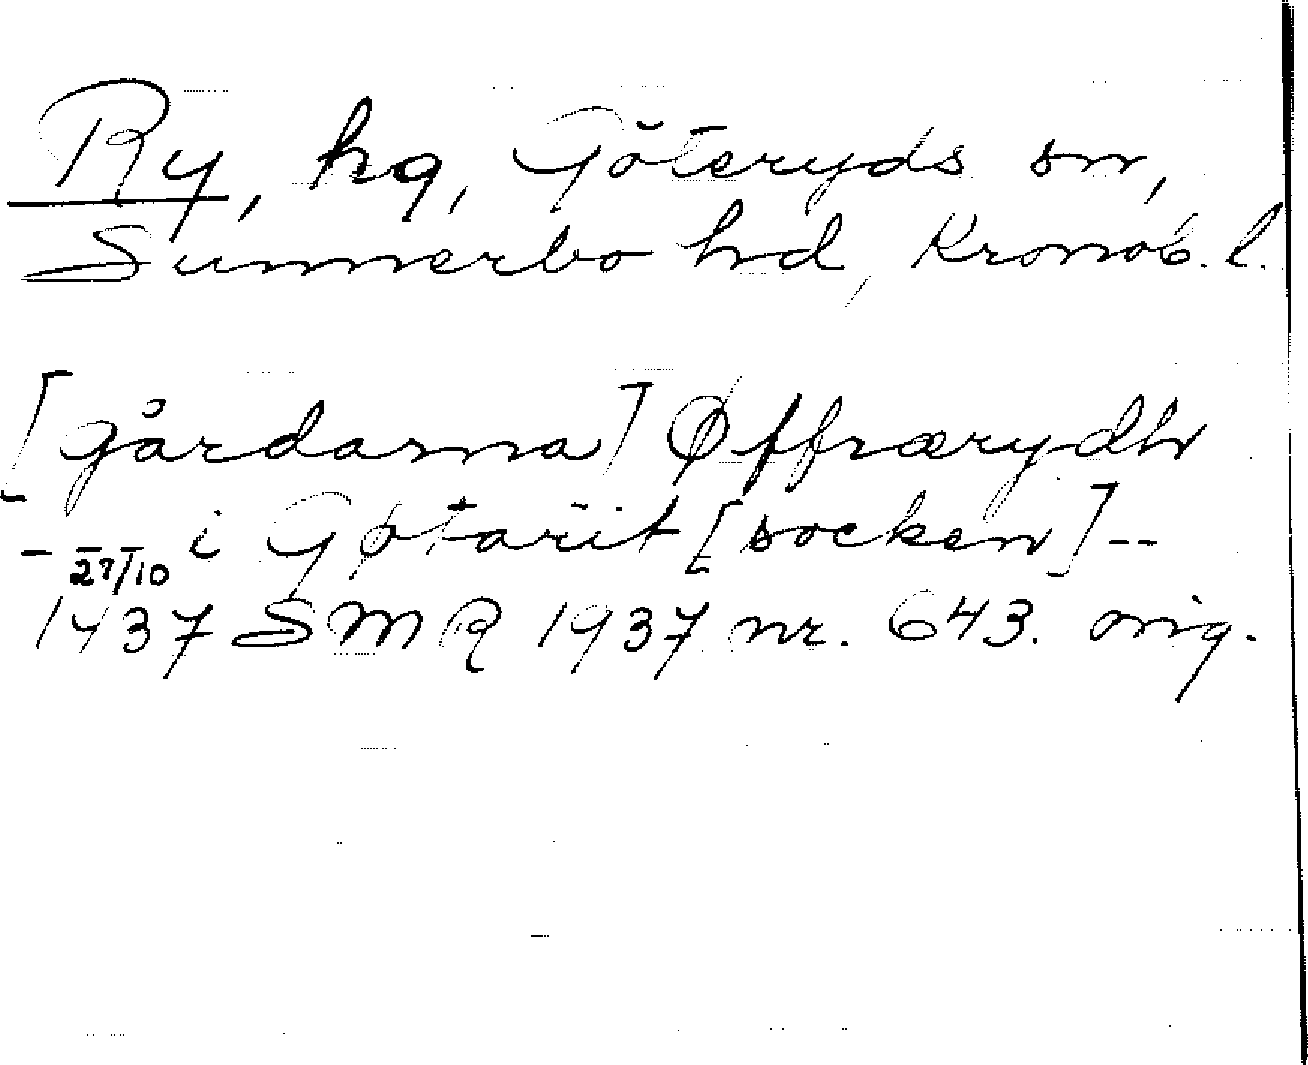 Ry, hg, Göteryds sn,
Sunnerbo hd, Kronob. l.
[gårdarna] Øffrærydh
- 27/10 i Gøtarit [socken] --
1437 SMR 1937 nr. 643. orig.